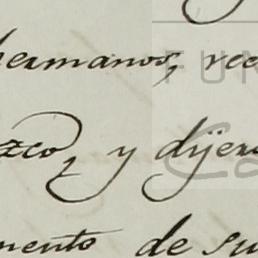 hermanos, rec
zco, y dijer
mento de su
FUN